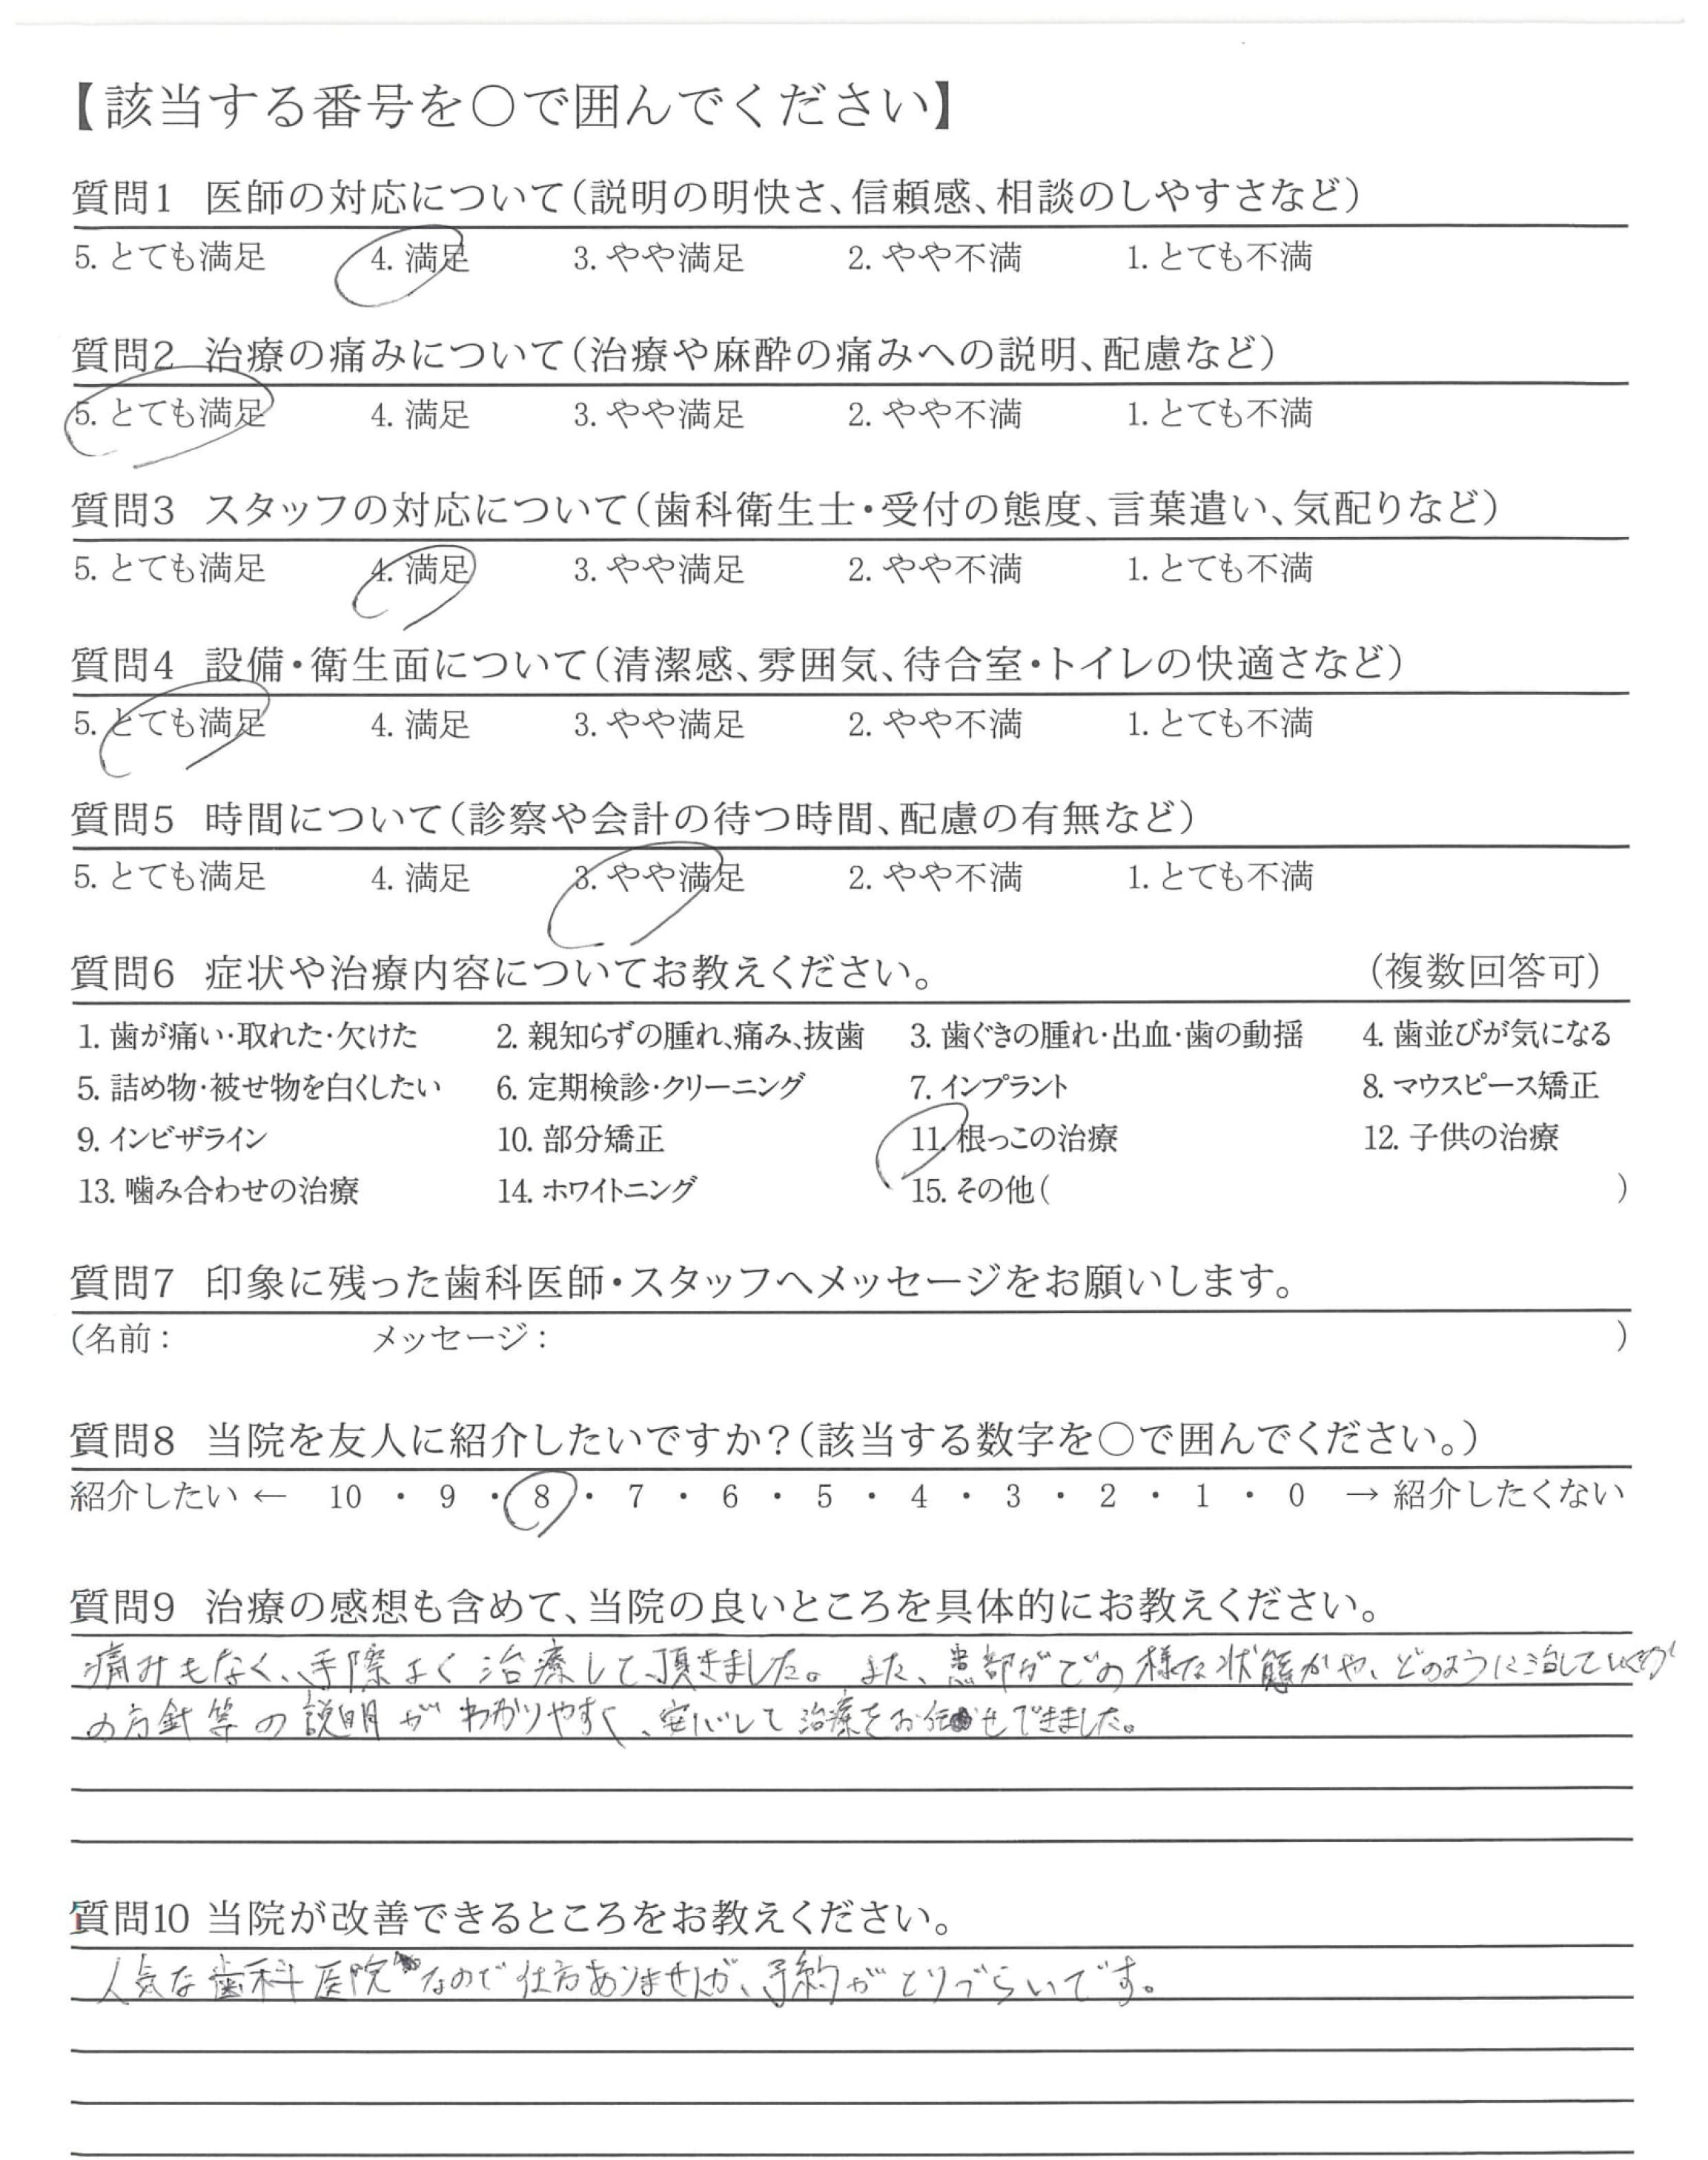 【該当する番号を○で囲んでください】
質問1 医師の対応について(説明の明快さ、信頼感、相談のしやすさなど)
5. とても満足 4. 満足 3. やや満足 2. やや不満 1. とても不満
質問2 治療の痛みについて(治療や麻酔の痛みへの説明、配慮など)
5. とても満足 4. 満足 3. やや満足 2. やや不満 1. とても不満
質問3 スタッフの対応について(歯科衛生士・受付の態度、言葉遣い、気配りなど)
5. とても満足 4. 満足 3. やや満足 2. やや不満 1. とても不満
質問4 設備・衛生面について(清潔感、雰囲気、待合室・トイレの快適さなど)
5. とても満足 4. 満足 3. やや満足 2. やや不満 1. とても不満
質問5 時間について(診察や会計の待つ時間、配慮の有無など)
5. とても満足 4. 満足 3. やや満足 2. やや不満 1. とても不満
質問6 症状や治療内容についてお教えください。 (複数回答可)
1. 歯が痛い・取れた・欠けた 2. 親知らずの腫れ、痛み、抜歯 3. 歯ぐきの腫れ・出血・歯の動揺 4. 歯並びが気になる
5. 詰め物・被せ物を白くしたい 6. 定期検診・クリーニング 7. インプラント 8. マウスピース矯正
9. インビザライン 10. 部分矯正 11. 根っこの治療 12. 子供の治療
13. 噛み合わせの治療 14. ホワイトニング 15. その他( )
質問7 印象に残った歯科医師・スタッフへメッセージをお願いします。
(名前: メッセージ: )
質問8 当院を友人に紹介したいですか?(該当する数字を○で囲んでください。)
紹介したい ← 10 ・ 9 ・ 8 ・ 7 ・ 6 ・ 5 ・ 4 ・ 3 ・ 2 ・ 1 ・ 0 → 紹介したくない
質問9 治療の感想も含めて、当院の良いところを具体的にお教えください。
痛みもなく、手際よく治療して頂きました。また、患部がどの様な状態かや、どのように治していくか
の方針等の説明がわかりやすく、安心して治療をお任せできました。
質問10 当院が改善できるところをお教えください。
人気な歯科医院なので仕方ありませんが、予約がとりづらいです。